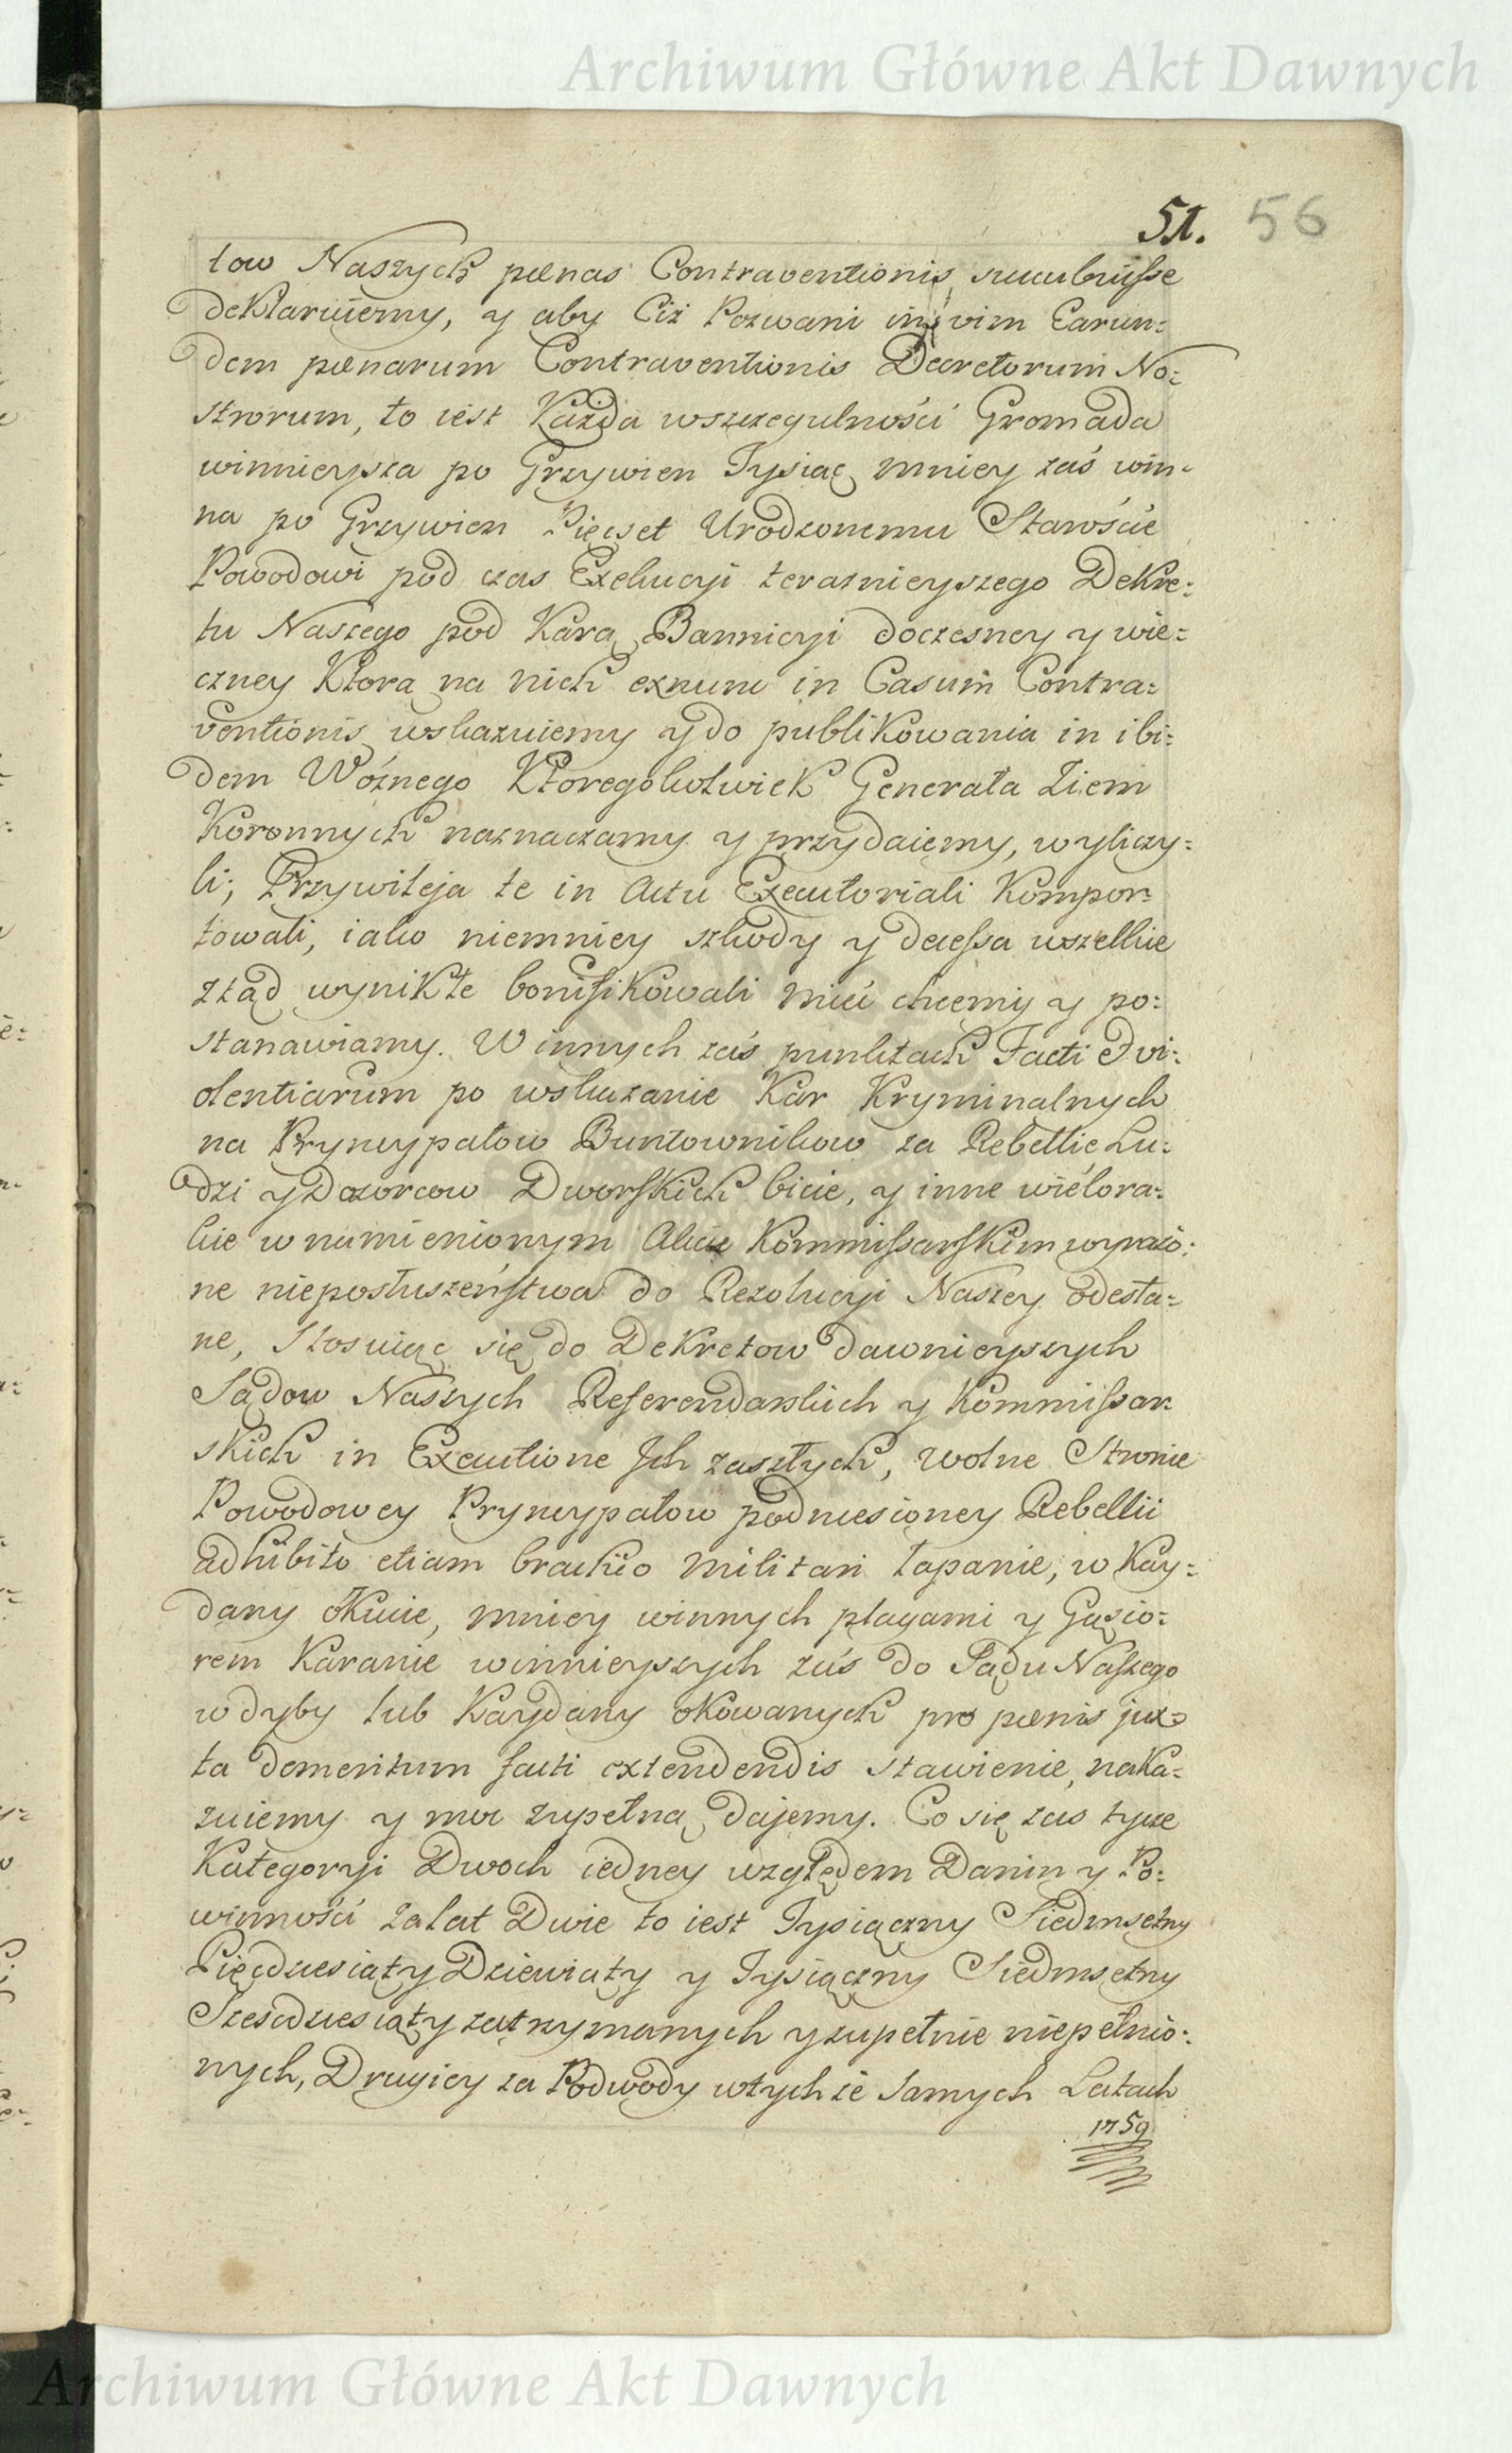 Archiwum Główne Akt Dawnych
51. 56
tow Naszych pœnas Contraventionis succubuisse
deklaruiemy, y aby Ciż Pozwani in vim Earun:
dem pœnarum Contraventionis Decretorum No:
strorum, to iest Każda wszczegulności Gromada
winnieysza po Grzywien Tysiąc mniey zaś win-
na po Grzywien Pięcset Urodzonemu Staroście
Powodowi pod czas Exekucyi teraznieyszego Dekre:
tu Naszego pod Karą Bannicyi doczesney y wie:
czney Ktorą na nich exnunc in Casum Contra:
ventionis wskazuiemy y do publikowania in ibi:
dem Woźnego Ktoregokolwiek Generała Ziem
Koronnych naznaczamy y przydaiemy, wyliczy:
li; Przywileja te in Actu Executoriali Kompor:
towali, iako niemniey szkody y decessa wszelkie
ztąd wynikłe bonifikowali mieć chcemy y po:
stanawiamy. W innych zaś punktach Facti et vi:
olentiarum po wskazanie Kar Kryminalnych
na Pryncypałow Buntownikow za Rebellie Lu:
dzi y Dozorcow Dworskich bicie, y inne wielora:
kie w namienionym Akcie Kommissarskim wyrażo:
ne nieposłuszeństwa do Rezolucyi Naszey odesła:
ne, Stosuiąc się do Dekretow dawnieyszych
Sądow Naszych Referendarskich y Kommissar:
skich in Executione Ich zaszłych, wolne Stronie
Powodowey Pryncypałow podniesioney Rebellii
adhibito etiam brachio militari łapanie, w Kay:
dany okucie, mniey winnych plagami y Gąsio:
rem Karanie winnieyszych zaś do Sądu Naszego
w dyby lub Kaydany okowanych pro pœnis jux:
ta demeritum facti extendendis stawienie, naka:
zuiemy y moc zupełną dajemy. Co się zaś tycze
Kategoryi Dwoch iedney względem Danin y Po:
winności za lat Dwie to iest Tysiączny Siedmsetny
Pięćdziesiąty Dziewiąty y Tysiączny Siedmsetny
Sześćdziesiąty zatrzymanych y zupełnie niepełnio:
nych, Drugiey za Podwody wtychże samych Latach
1759
Archiwum Główne Akt Dawnych